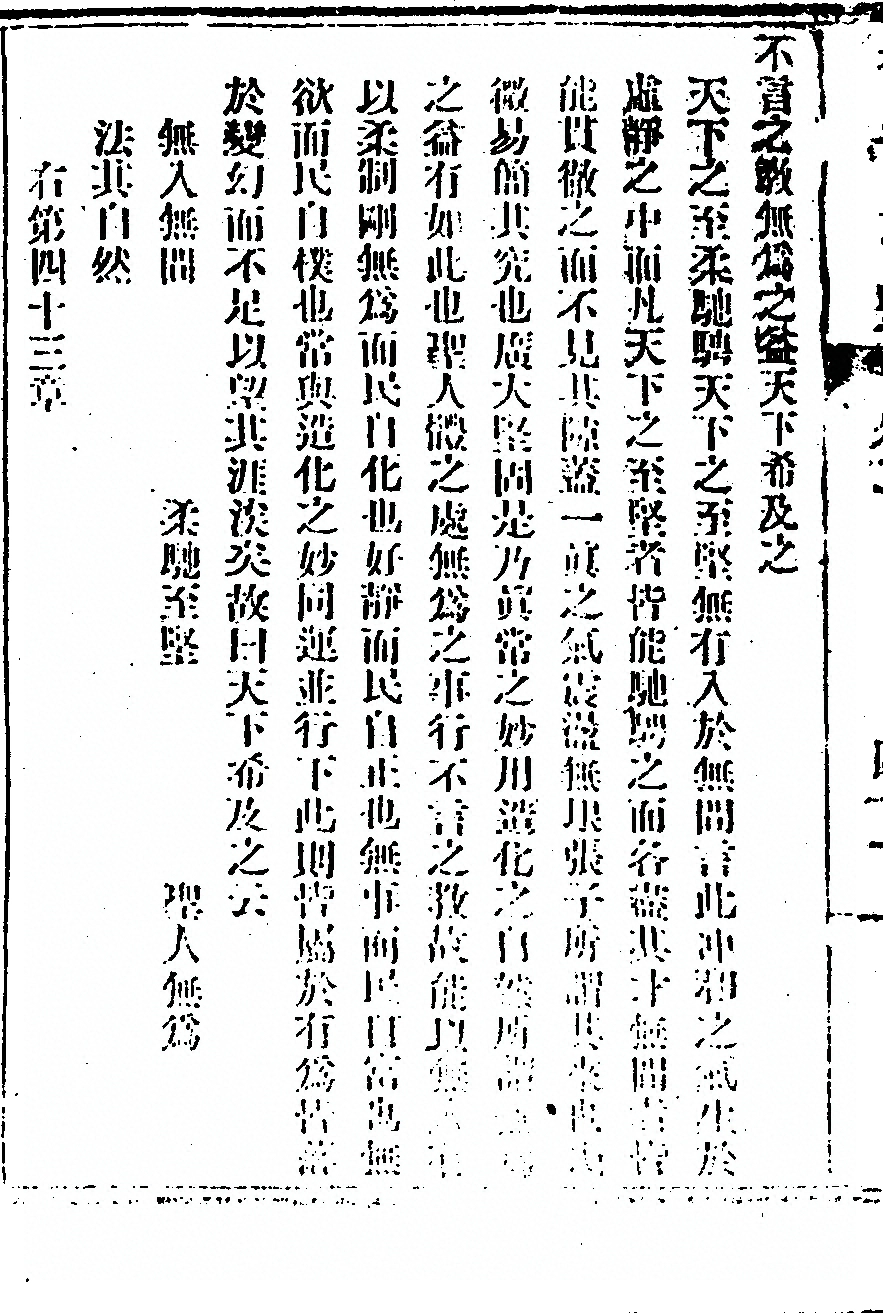 不言之敎無爲之益天下希及之
天下之至柔馳騁天下之至堅無有入於無間言此冲和之氣生於
虛靜之中而凡天下之至堅者皆能馳騁之而各盡其才無間者皆
能貫徹之而不見其隙蓋一眞之氣流盪無垠張子所謂其來也
微易簡其究也廣大堅固是乃眞常之妙用造化之自然所謂無爲
之益有如此也聖人體之處無爲之事行不言之敎故能以無入有
以柔制剛無爲而民自化也好靜而民自正也無事而民自富也無
欲而民自樸也常與造化之妙同運並行下此則皆屬於有爲皆落
於變幻而不足以望其涯涘矣故曰天下希及之云
無入無間 柔馳至堅 聖人無爲
法其自然
右第四十三章